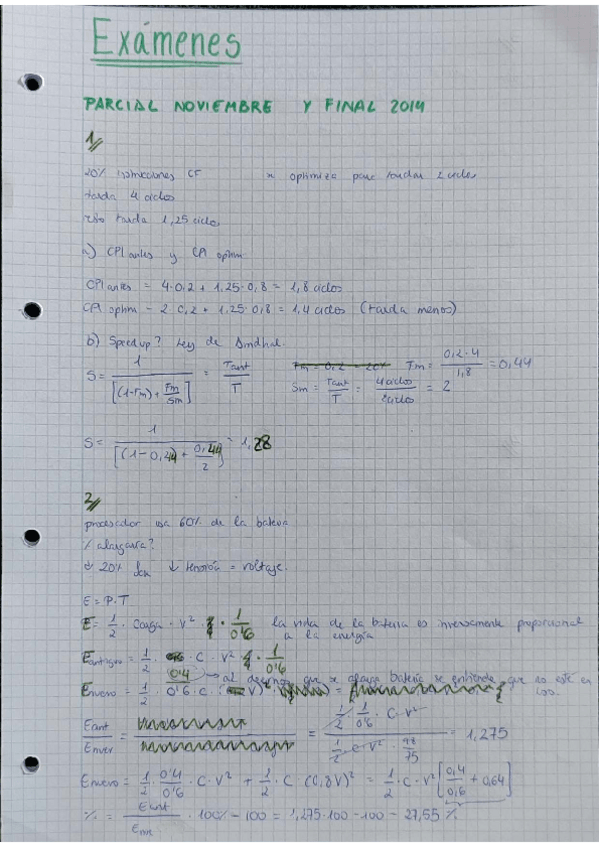 Exámenes
PARCIAL NOVIEMBRE Y FINAL 2014
1//
20% instrucciones CF se optimiza para tardar 2 ciclos
tarda 4 ciclos
resto tarda 1,25 ciclos
a) CPI antes y CPI optim
CPI antes = 4·0,2 + 1,25·0,8 = 1,8 ciclos
CPI optim = 2·0,2 + 1,25·0,8 = 1,4 ciclos (tarda menos)
b) Speedup? Ley de Amdhal.
S = 1 / [(1-Fm) + Fm/Sm] = Tant / T Fm = 0,2·4 / 1,8 = 0,44
Sm = Tant / T = 4 ciclos / 2 ciclos = 2
S = 1 / [(1-0,44) + 0,44/2] = 1,28
2//
procesador usa 60% de la batería
% alargaría?
20% fck ↓ tensión = voltaje.
E = P·T
E = 1/2 · Carga · V² · 1/0'6 la vida de la batería es inversamente proporcional
a la energía
Eantigua = 1/2 · C · V² · 1/0'6
0'4 → al decirnos que se alarga batería se entiende que es este en
Enuevo = 1/2 · 0'6 · C · V)² =
Eant / Enuev = = 1/2 · 1/0'6 · C · V² / 1/2 · C · V² · 98/75 = 1,275
Enuevo = 1/2 · 0'4/0'6 · C · V² + 1/2 · C (0,8V)² = 1/2 · C · V² [0,4/0,6 + 0,64]
% = Eant / · 100% - 100 = 1,275·100 - 100 = 27,55 %